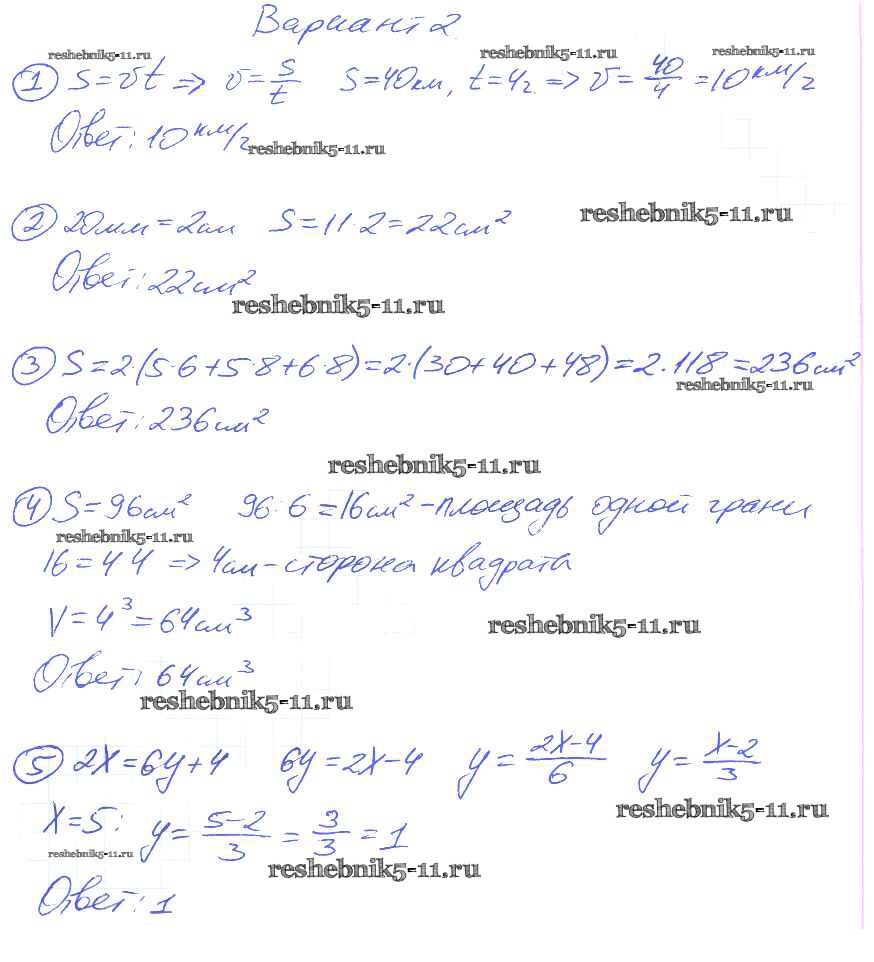 Вариант 2
reshebnik5-11.ru reshebnik5-11.ru reshebnik5-11.ru
① S=vt => v=S/t S=40км, t=4г => v=40/4=10км/г
Ответ: 10км/г reshebnik5-11.ru
② 20мм=2см S=11·2=22см² reshebnik5-11.ru
Ответ: 22см²
reshebnik5-11.ru
③ S=2·(5·6+5·8+6·8)=2·(30+40+48)=2·118=236см²
reshebnik5-11.ru
Ответ: 236см²
reshebnik5-11.ru
④ S=96см² 96:6=16см²-площадь одной грани
reshebnik5-11.ru
16=4·4 => 4см-сторона квадрата
V=4³=64см³ reshebnik5-11.ru
Ответ: 64см³
reshebnik5-11.ru
⑤ 2x=6y+4 6y=2x-4 y=(2x-4)/6 y=(x-2)/3
reshebnik5-11.ru
x=5: y=(5-2)/3=3/3=1
reshebnik5-11.ru reshebnik5-11.ru
Ответ: 1